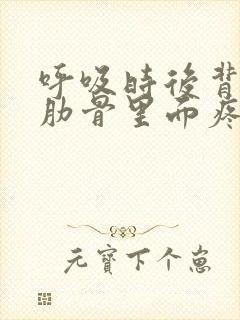 呼吸时后背
肋骨里面疼
元寶下个崽